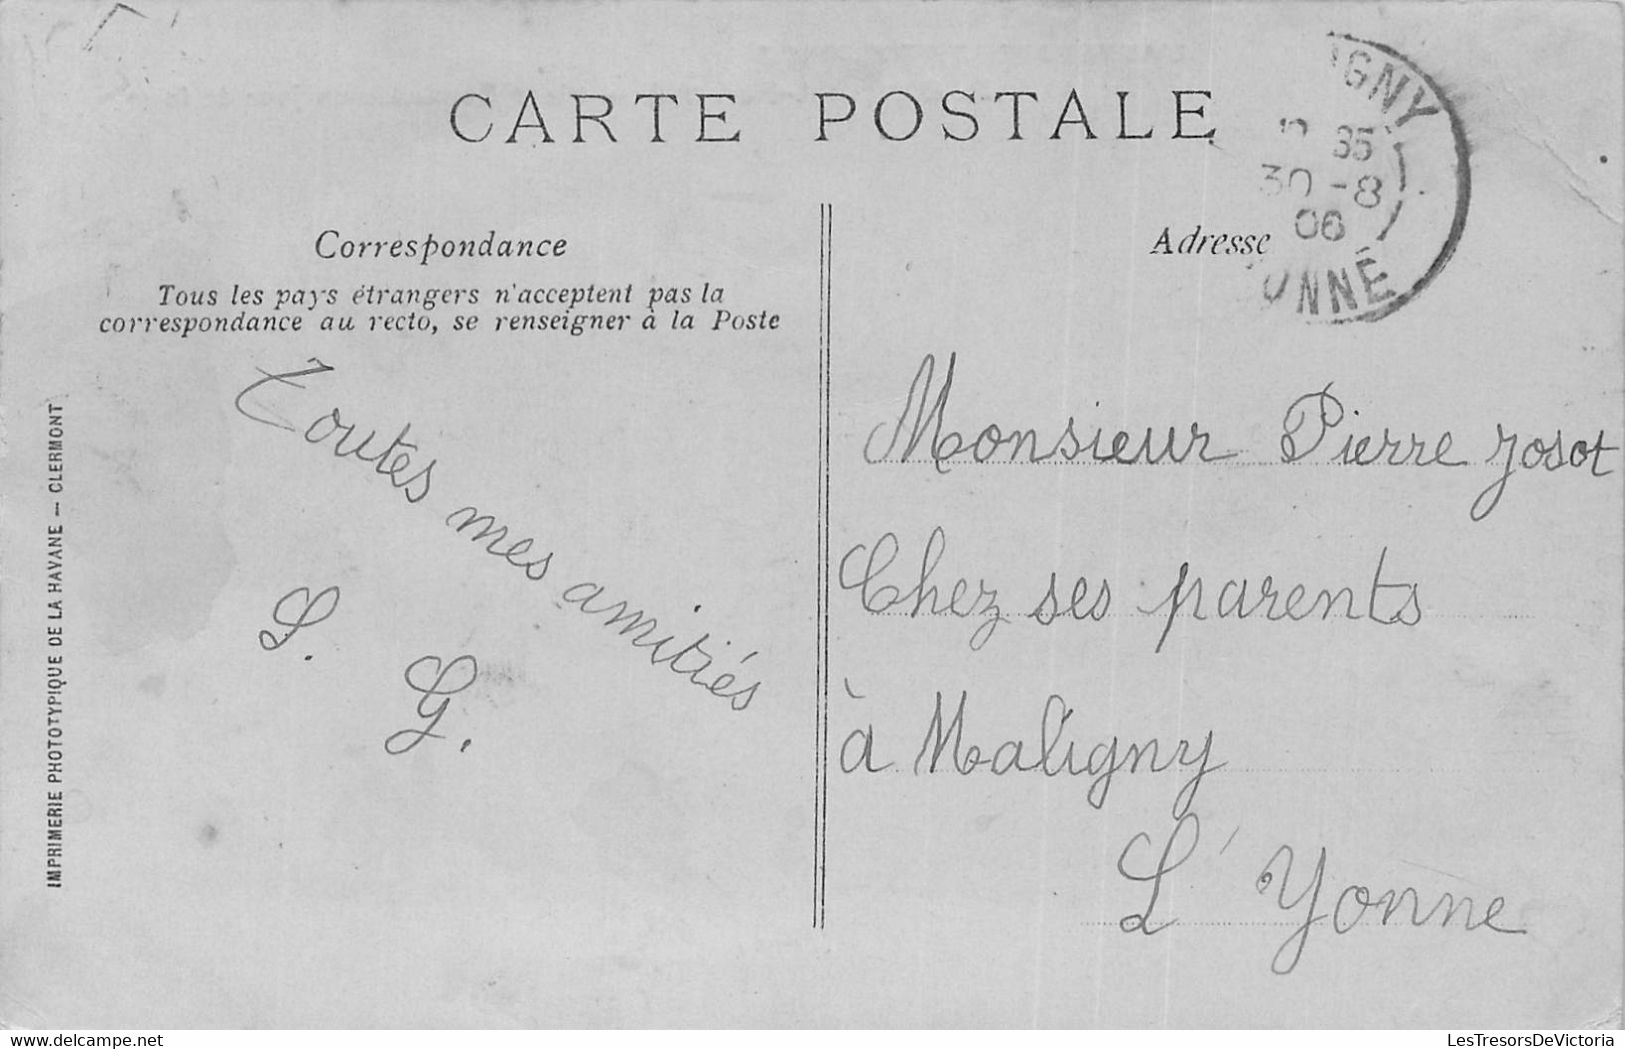 CARTE POSTALE
IGNY
35
30 - 8
06
YONNE
Correspondance
Adresse
Tous les pays étrangers n'acceptent pas la
correspondance au recto, se renseigner à la Poste
Toutes mes amitiés
S. G.
Monsieur Pierre Josot
Chez ses parents
à Maligny
L'Yonne
IMPRIMERIE PHOTOTYPIQUE DE LA HAVANE — CLERMONT
delcampe.net
LesTresorsDeVictoria